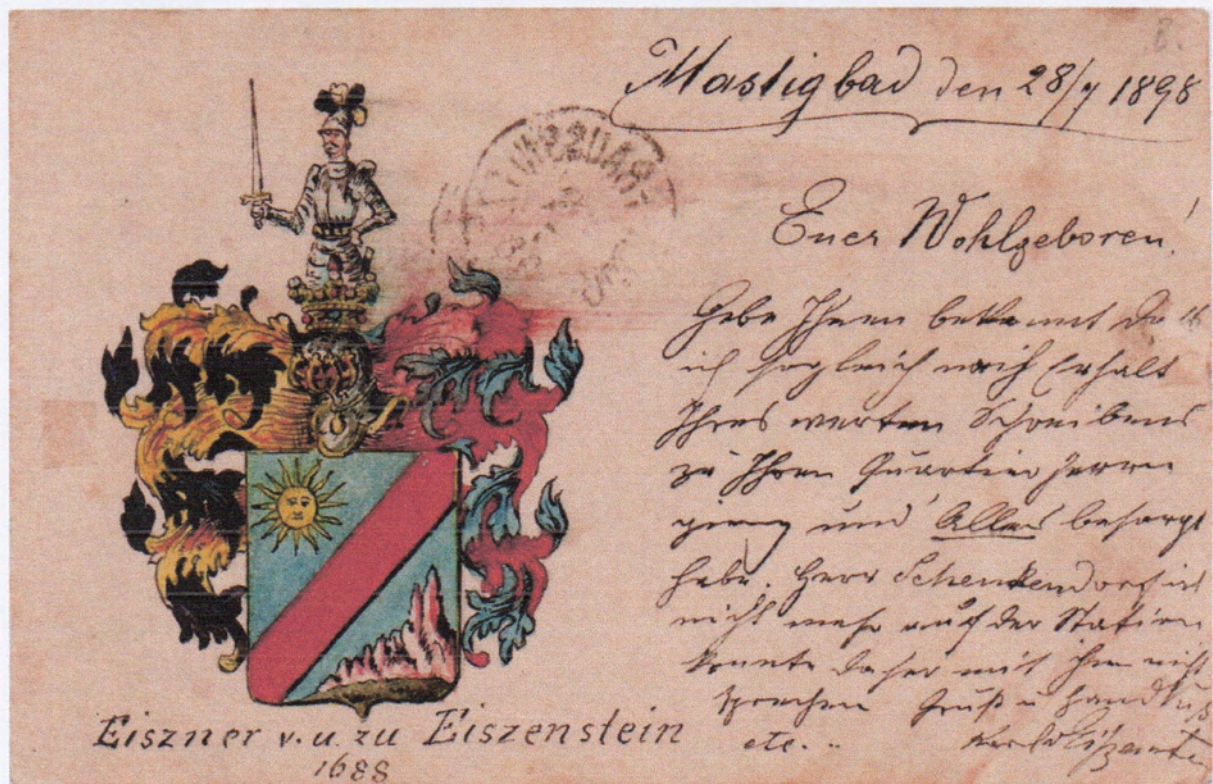 Mastigbad den 28/7 1898
Euer Wohlgeboren!
Gebe Ihnen bekannt daß
ich sogleich nach Erhalt
Ihres werten Schreibens
zu Ihrem Quartierherrn
ging und Alles besorgt
habe. Herr Schenkendorf ist
nicht mehr auf der Station
konnte daher mit ihm nicht
sprechen Gruß u Handkuß
etc...
Eiszner v. u. zu Eiszenstein
1688